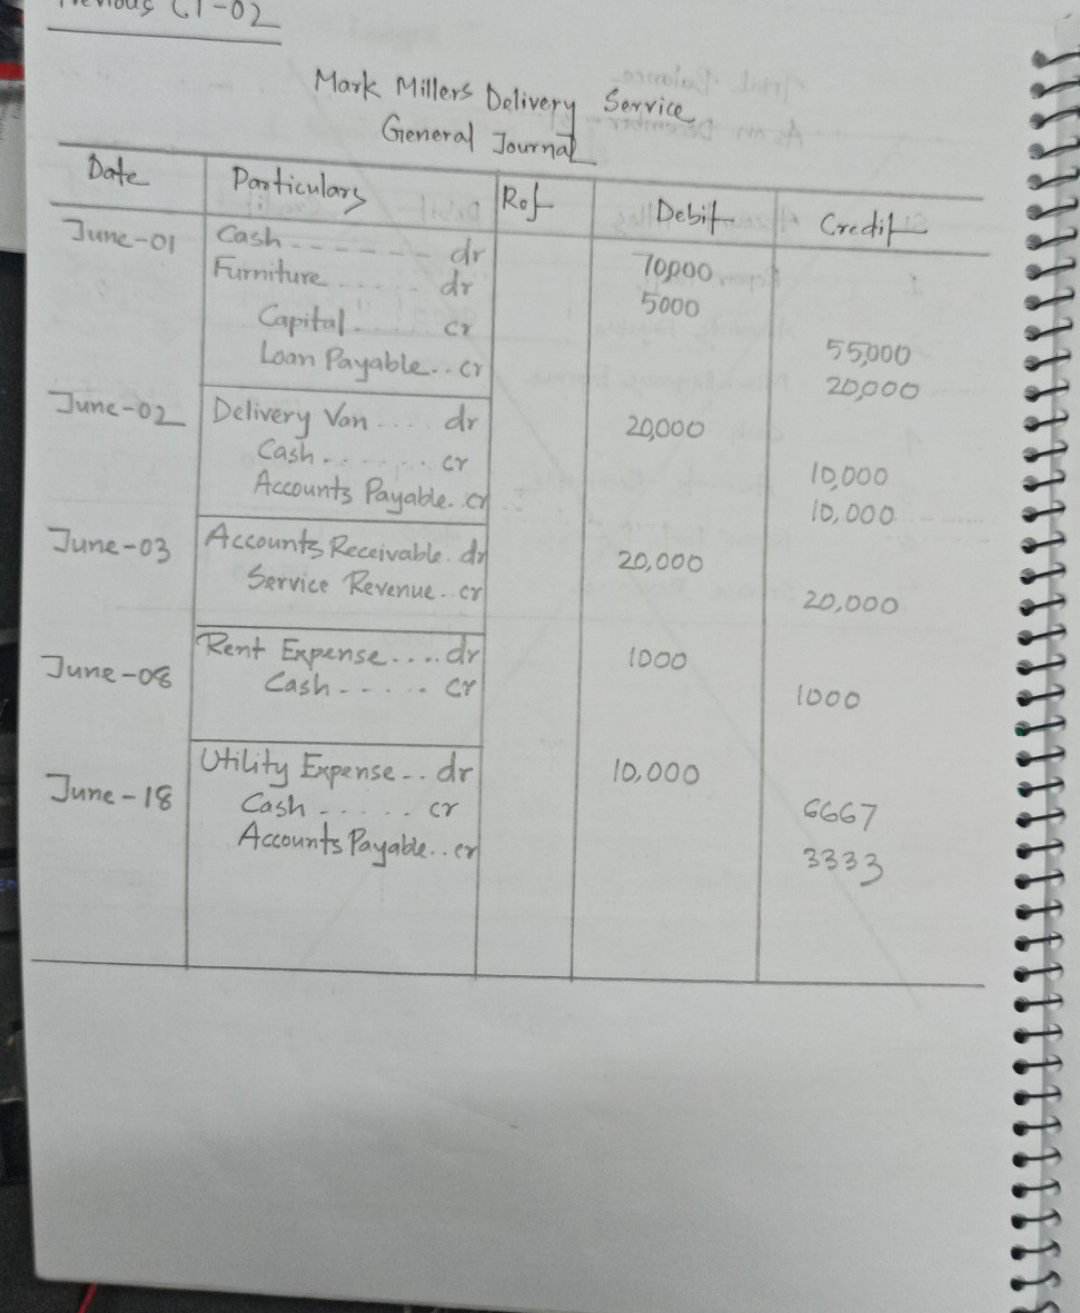 Previous CT-02
Mark Millers Delivery Service
General Journal
Date Particulars Ref Debit Credit
June-01 Cash ...... dr 70,000
Furniture ...... dr 5000
Capital ... cr 55,000
Loan Payable.. cr 20,000
June-02 Delivery Van .... dr 20,000
Cash ....... cr 10,000
Accounts Payable. cr 10,000
June-03 Accounts Receivable. dr 20,000
Service Revenue.. cr 20,000
June-08 Rent Expense.... dr 1000
Cash ..... cr 1000
June-18 Utility Expense.. dr 10,000
Cash ...... cr 6667
Accounts Payable.. cr 3333